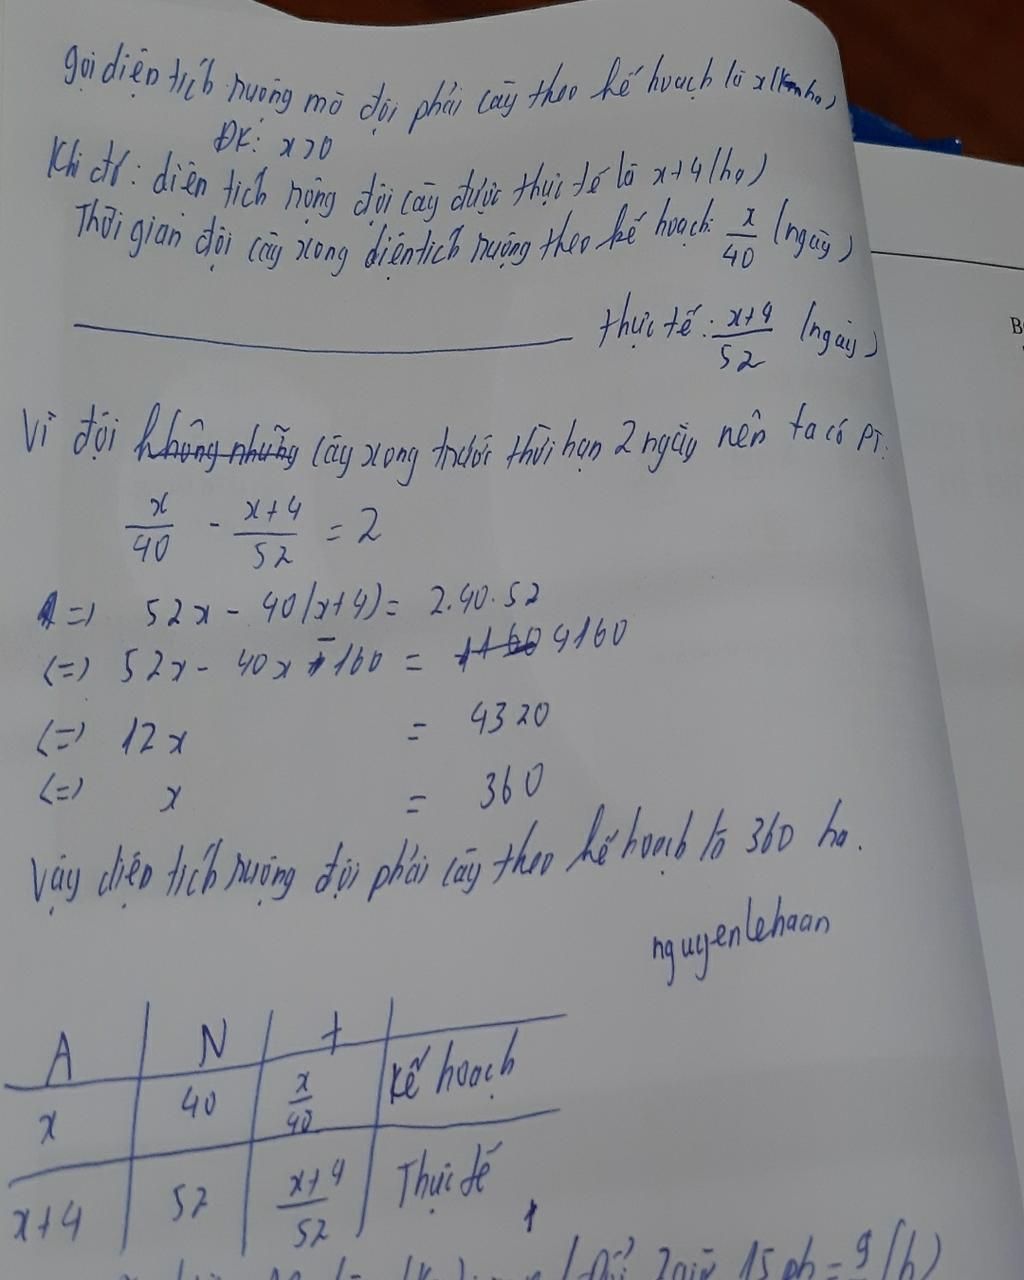 gọi diện tích ruộng mà đội phải cày theo kế hoạch là x (ha)
ĐK: x>0
Khi đó: diên tích rộng đội cày được thực tế là x+4 (ha)
Thời gian đội cày xong diện tích ruộng theo kế hoạch: x/40 (ngày)
thực tế: x+4/52 (ngày)
Vì đội không những cày xong trước thời hạn 2 ngày nên ta có PT:
x/40 - x+4/52 = 2
=> 52x - 40(x+4) = 2.40.52
<=> 52x - 40x - 160 = 4160
<=> 12x = 4320
<=> x = 360
Vậy diện tích ruộng đội phải cày theo kế hoạch là 360 ha.
nguyenlehaan
A N t
x 40 x/40 Kế hoạch
x+4 52 x+4/52 Thực tế
15 ph = 9 (h)